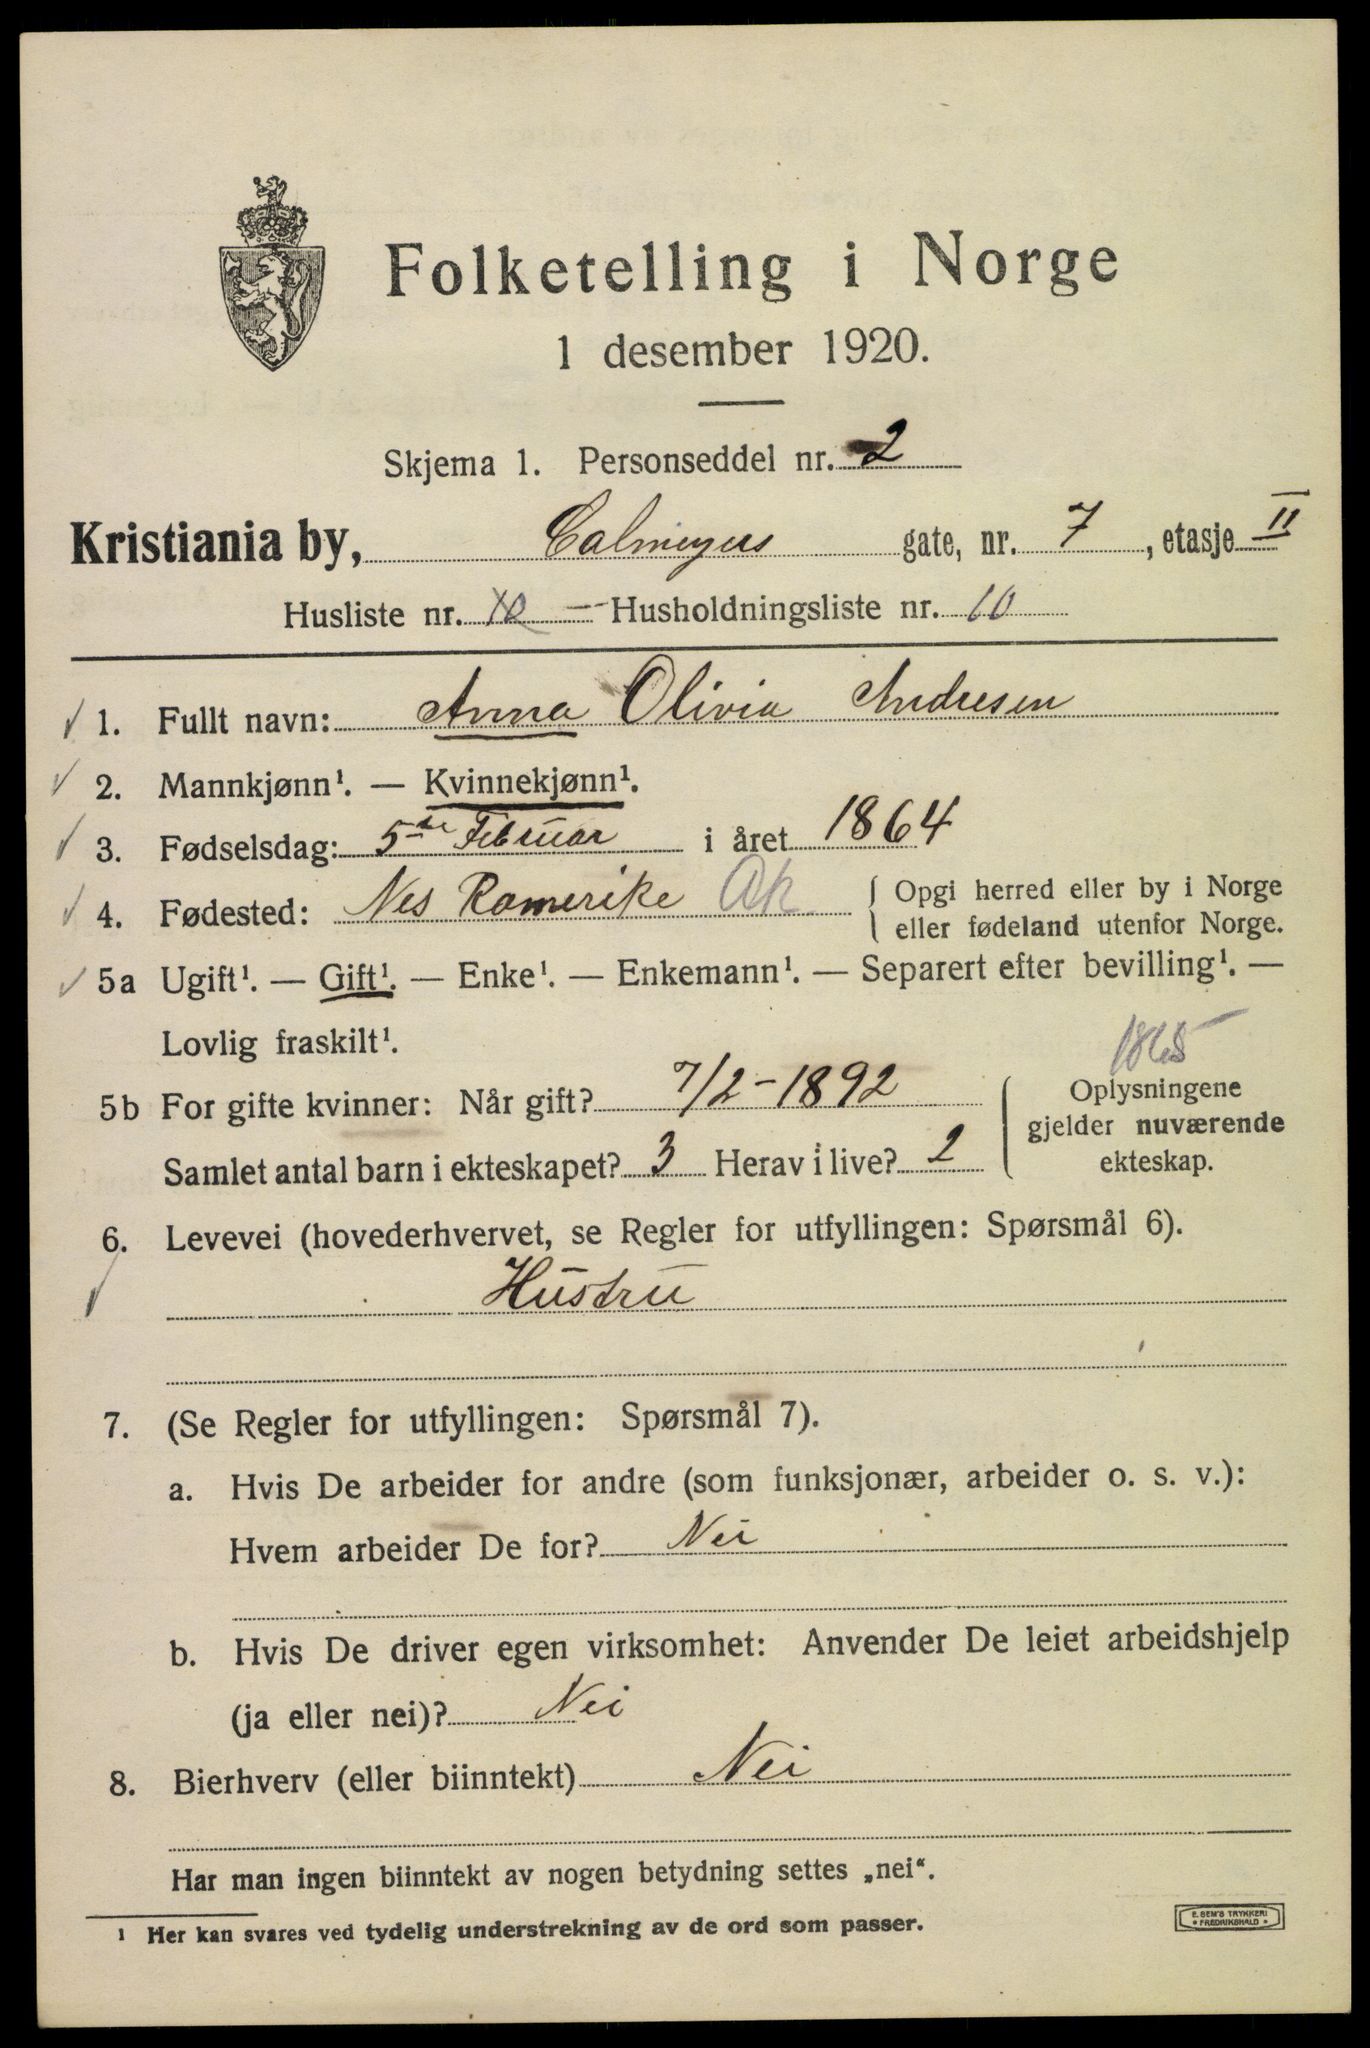 Folketelling i Norge
1 desember 1920.
Skjema 1. Personseddel nr. 2
Kristiania by, Calmeyers gate, nr. 7, etasje II
Husliste nr. — Husholdningsliste nr. 10
1. Fullt navn: Anna Olivia Andresen
2. Mannkjønn¹. — Kvinnekjønn¹.
3. Fødselsdag: 5te Februar i året 1864
4. Fødested: Nes Romerike Ak. Opgi herred eller by i Norge
eller fødeland utenfor Norge.
5a Ugift¹. — Gift¹. — Enke¹. — Enkemann¹. — Separert efter bevilling¹. —
Lovlig fraskilt¹.
1865
5b For gifte kvinner: Når gift? 7/2-1892
Samlet antal barn i ekteskapet? 3 Herav i live? 2
Oplysningene
gjelder nuværende
ekteskap.
6. Levevei (hovederhvervet, se Regler for utfyllingen: Spørsmål 6).
Hustru
7. (Se Regler for utfyllingen: Spørsmål 7).
a. Hvis De arbeider for andre (som funksjonær, arbeider o. s. v.):
Hvem arbeider De for? Nei
b. Hvis De driver egen virksomhet: Anvender De leiet arbeidshjelp
(ja eller nei)? Nei
8. Bierhverv (eller biinntekt) Nei
Har man ingen biinntekt av nogen betydning settes „nei“.
¹ Her kan svares ved tydelig understrekning av de ord som passer.
E. SEM'S TRYKKERI
• FREDRIKSHALD •